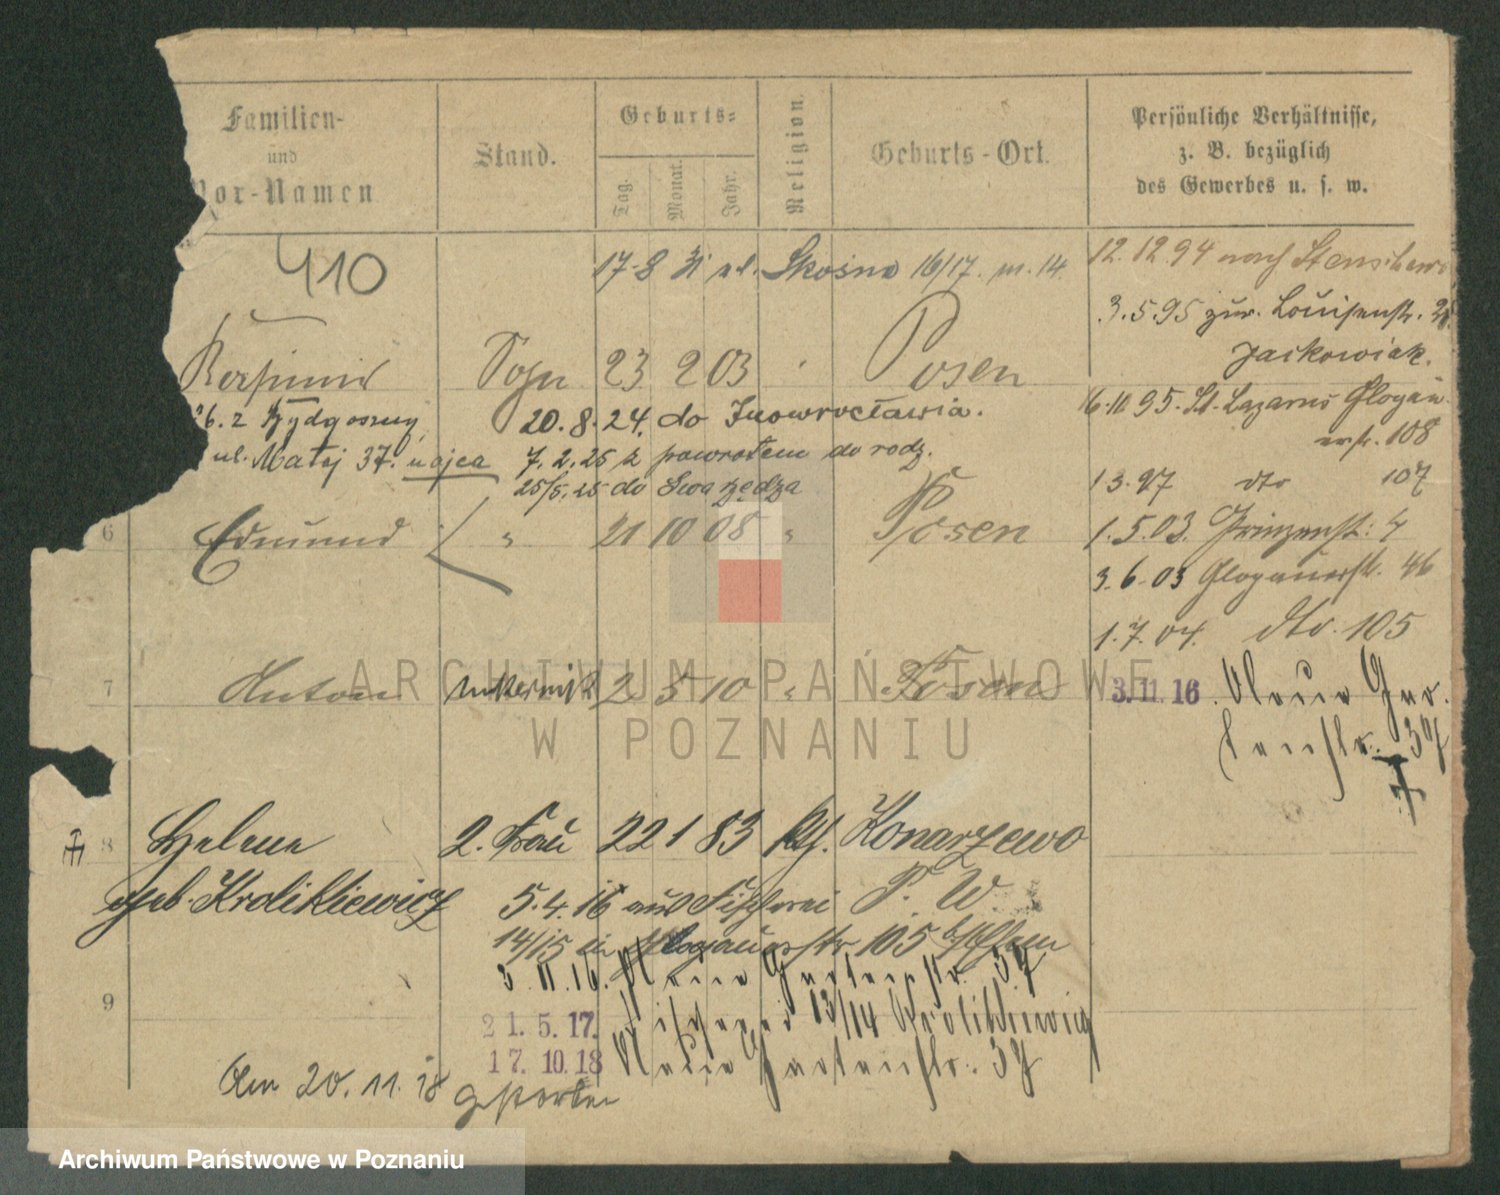 Familien-
und
Vor-Namen
Stand.
Geburts-
Tag.
Monat.
Jahr.
Religion
Geburts-Ort.
Persönliche Verhältnisse,
z. B. bezüglich
des Gewerbes u. s. w.
410
17-8 Skośna 16/17. m. 14.
12. 12 94 nach Stenschewo
3. 5. 95 zur. Louisenstr.
Jackowiak.
Kasimir Sohn 23 2 03 Posen
26. z Bydgoszczy
20. 8. 24. do Inowrocławia.
16. 10 95. St. Lazarus Glogau
erstr. 108
ul. Matej 37. u ojca
7. 2. 25 z powrotem do rodz.
25/5. 25 do Swarzędza
1 3. 97 dto 107
6 Edmund " 21 10 08 " Posen
1. 5. 03. Prinzenstr. 4
3. 6. 03 Glogauerstr. 46
1. 7. 04. dto. 105
7 Anton 2 5 10 " Posen
3. 11. 16
tenstr. 37
8 Helene 2. Frau 22 1 83 kth. Konarzewo
geb. Krolikiewicz
5. 4. 16 aus Fischerei P. W.
14/15 in Glogauerstr 105
3 11. 16. Neue Gartenstr. 37
9
21. 5. 17. Fischerei 13/14 Krolikiewicz
17. 10. 18 Neue Gartenstr. 37
Am 20. 11. 18 gestorben
ARCHIWUM PAŃSTWOWE
W POZNANIU
Archiwum Państwowe w Poznaniu